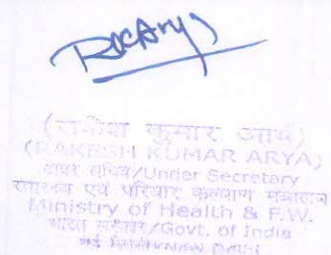 RKArya
(राकेश कुमार आर्य)
(RAKESH KUMAR ARYA)
अवर सचिव/Under Secretary
स्वास्थ्य एवं परिवार कल्याण मंत्रालय
Ministry of Health & F.W.
भारत सरकार/Govt. of India
नई दिल्ली/New Delhi